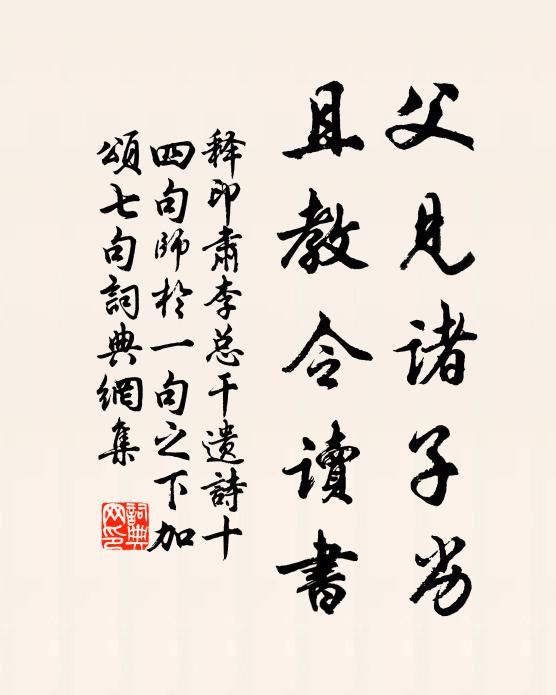 父見諸子劣
且教令讀書
释印肅李总干遺詩十
四句師於一句之下加
頌七句詞典網集
詞典
网印